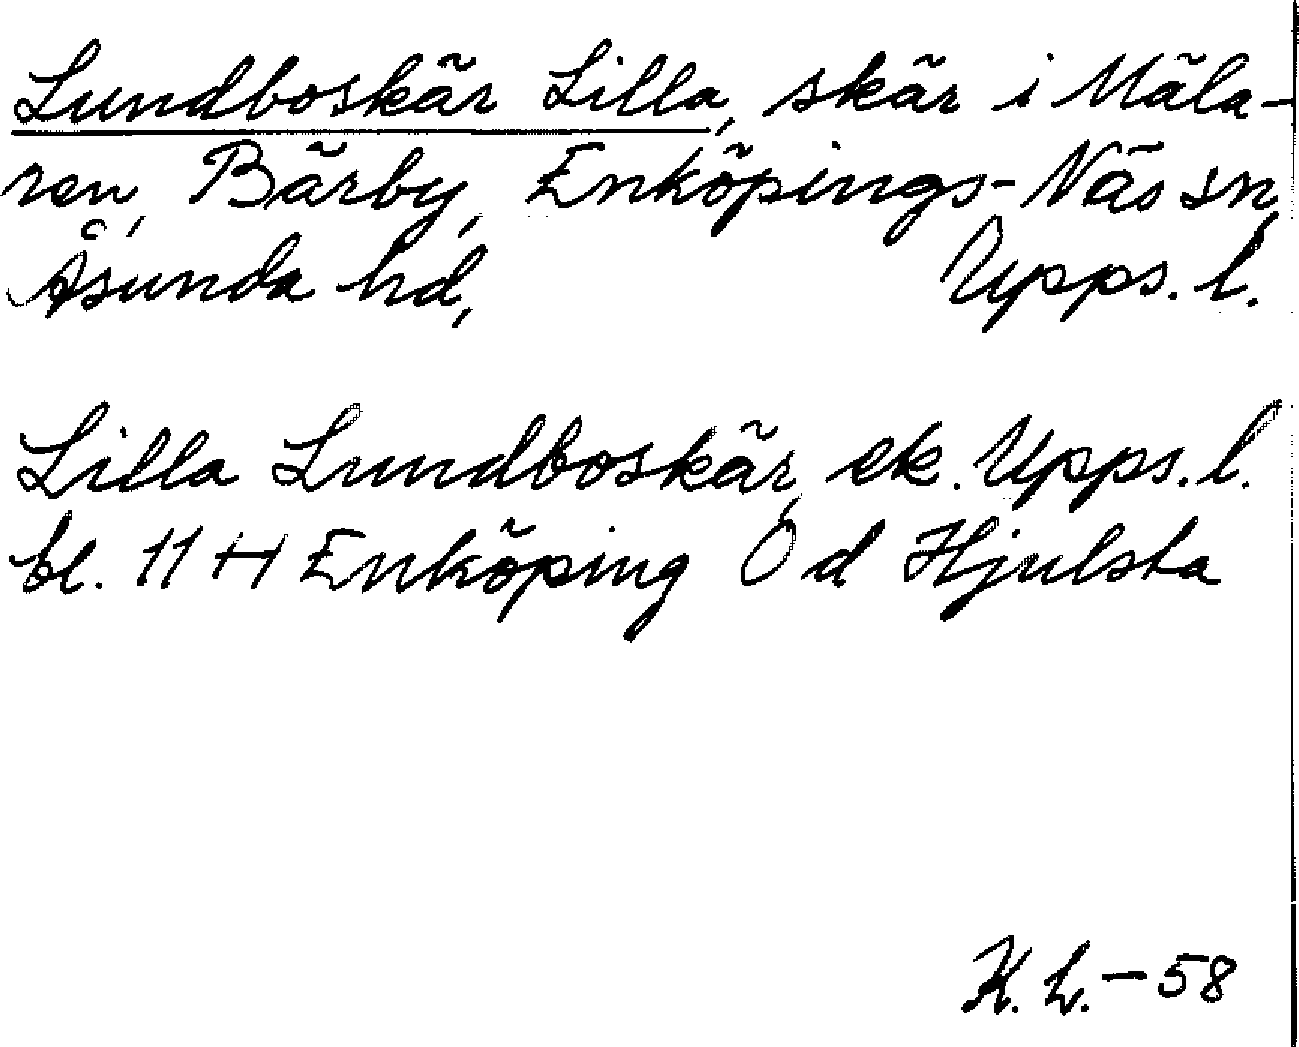 Lundboskär Lilla, skär i Mäla-
ren, Bärby, Enköpings-Näs sn,
Åsunda hd, Upps. l.
Lilla Lundboskär, ek. Upps. l.
bl. 11 H Enköping O d Hjulsta
K. L. – 58